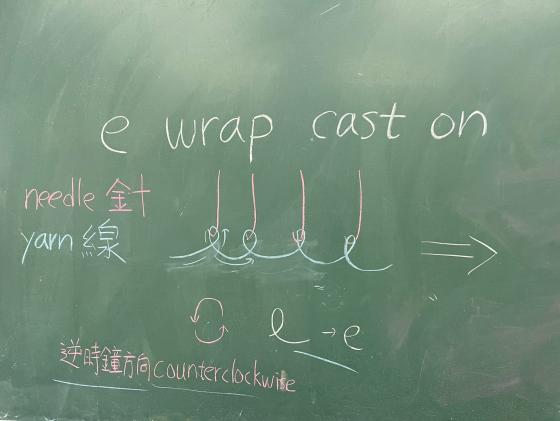 e wrap cast on
needle 針
yarn 線
e → e
逆時鐘方向 counterclockwise